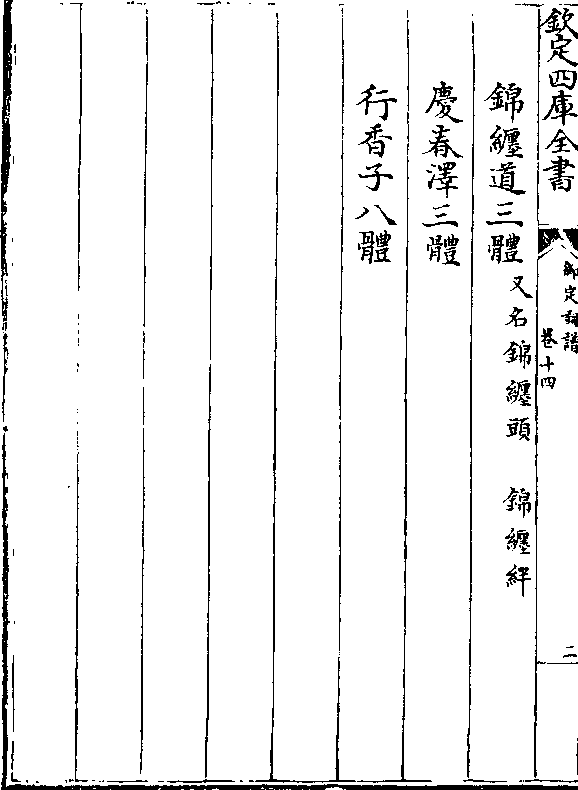 欽定四庫全書
御定詞譜
卷十四
二
錦纏道三體 又名錦纏頭 錦纏絆
慶春澤三體
行香子八體